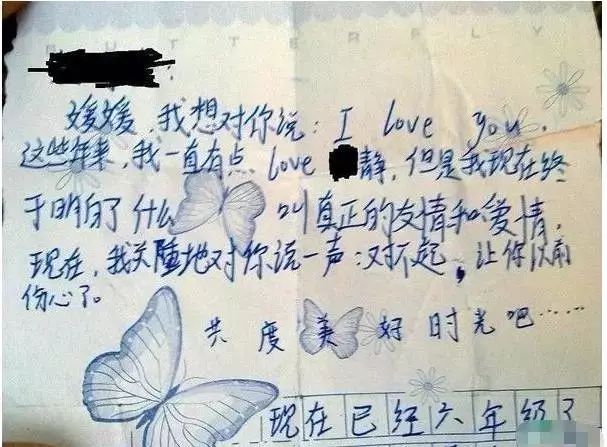 BUTTERFLY
媛媛，我想对你说：I love you.
这些年来，我一直有点 love 静，但是我现在终
于明白了什么叫真正的友情和爱情，
现在，我天随地对你说一声：对不起，让你以前
伤心了。
共度美好时光吧……
现在已经六年级了